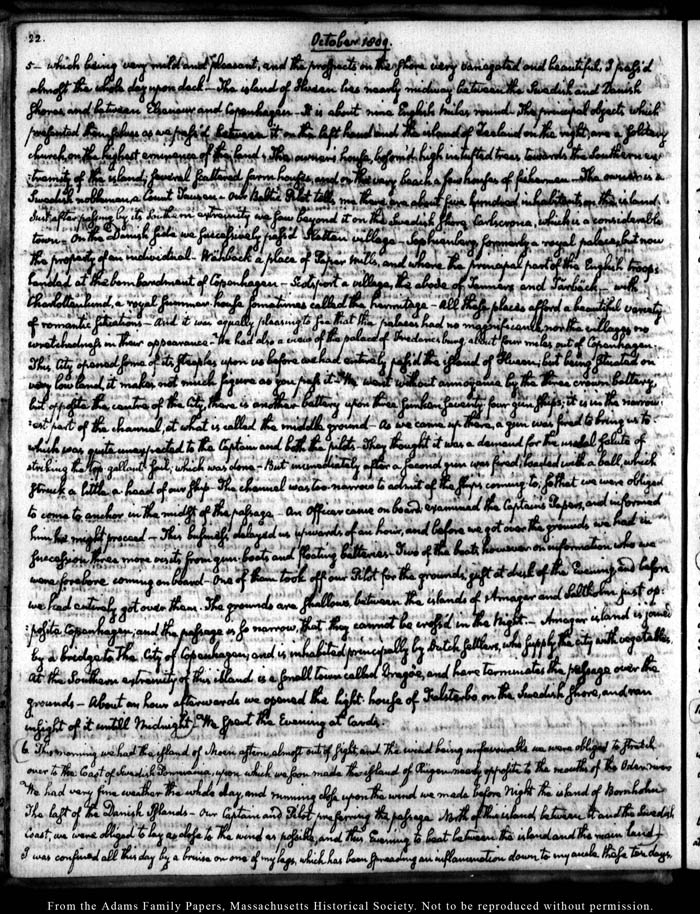 22.
October 1809.
5 — which being very mild and pleasant, and the prospects on the shore very variegated and beautiful, I pass'd
almost the whole day upon deck — The island of Hueen lies nearly midway between the Swedish and Danish
Shores and between Elsineur and Copenhagen — It is about nine English miles round. The principal objects which
presented themselves as we pass'd between it on the left hand and the island of Zealand on the right, are a solitary
church, on the highest eminence of the land; The owner's house, bosom'd high in tufted trees towards the Southern ex-
:tremity of the island; several scattered farm houses, and on the very beach a few houses of fishermen — The owner is a
Swedish nobleman, a Count — Our Baltic Pilot tells me there are about five hundred inhabitants on the island.
Just after passing by its Southern extremity we saw beyond it on the Swedish shore Carlscrona, which is a considerable
town — On the Danish side we successively pass'd village — Sophienberg, formerly a royal palace, but now
the property of an individual — a place of Paper Mills, and where the principal part of the English troops
landed at the bombardment of Copenhagen — a village, the abode of Tanners and — with
Charlottenlund, a royal summer-house sometimes called the hermitage — All these places afford a beautiful variety
of romantic situations — And it was equally pleasing to see that the palaces had no magnificence nor the villages no
wretchedness in their appearance — We had also a view of the palace of Fredericsburg, about four miles out of Copenhagen.
This City opened some of its steeples upon us before we had entirely pass'd the island of Hueen; but being situated on
very low land, it makes not much figure as you pass it — We went without annoyance by the three crown battery,
but opposite the centre of the City, there is another battery upon three sunken seventy four gun ships; it is in the narrow-
:est part of the channel, at what is called the middle ground — As we came up there, a gun was fired to bring us to —
which was quite unexpected to the Captain and both the pilots. They thought it was a demand for the usual salute of
striking the top gallant sail; which was done — But immediately after a second gun was fired, loaded with a ball, which
struck a little a head of our Ship. The channel was too narrow to admit of the ships coming to, so that we were obliged
to come to anchor in the midst of the passage — An Officer came on board, examined the Captain's Papers, and informed
him he might proceed — This business delayed us upwards of an hour, and before we got over the grounds we had in
succession three more visits from gun-boats and floating batteries. Two of the boats however on information who we
were forebore coming on board — One of them took off our Pilot for the grounds, just at dusk of the Evening and before
we had entirely got over them. The grounds are shallows, between the islands of Amager and Saltholm just op-
:posite Copenhagen; and the passage is so narrow, that they cannot be cross'd in the Night — Amager island is joined
by a bridge to the City of Copenhagen; and is inhabited principally by Dutch settlers, who supply the city with vegetables,
At the Southern extremity of this island is a small town called Dragoe, and here terminates the passage over the
grounds — About an hour afterwards we opened the light-house of Falsterbo on the Swedish shore, and ran
in sight of it until Midnight. We spent the Evening at Cards.
6. This morning we had the island of Moen astern, almost out of sight, and the wind being unfavourable we were obliged to stretch
over to the Coast of Swedish Pomerania, upon which we soon made the island of Rugen nearly opposite to the mouths of the Oder
We had very fine weather the whole day, and running close upon the wind we made before Night the island of Bornholm
The last of the Danish Islands — Our Captain and Pilot preferring the passage North of this island between it and the Swedish
Coast, we were obliged to lay as close to the wind as possible, and this Evening to beat between the island and the main land.
I was confined all this day by a bruise on one of my legs, which has been spreading an inflammation down to my ancle these ten days.
From the Adams Family Papers, Massachusetts Historical Society. Not to be reproduced without permission.